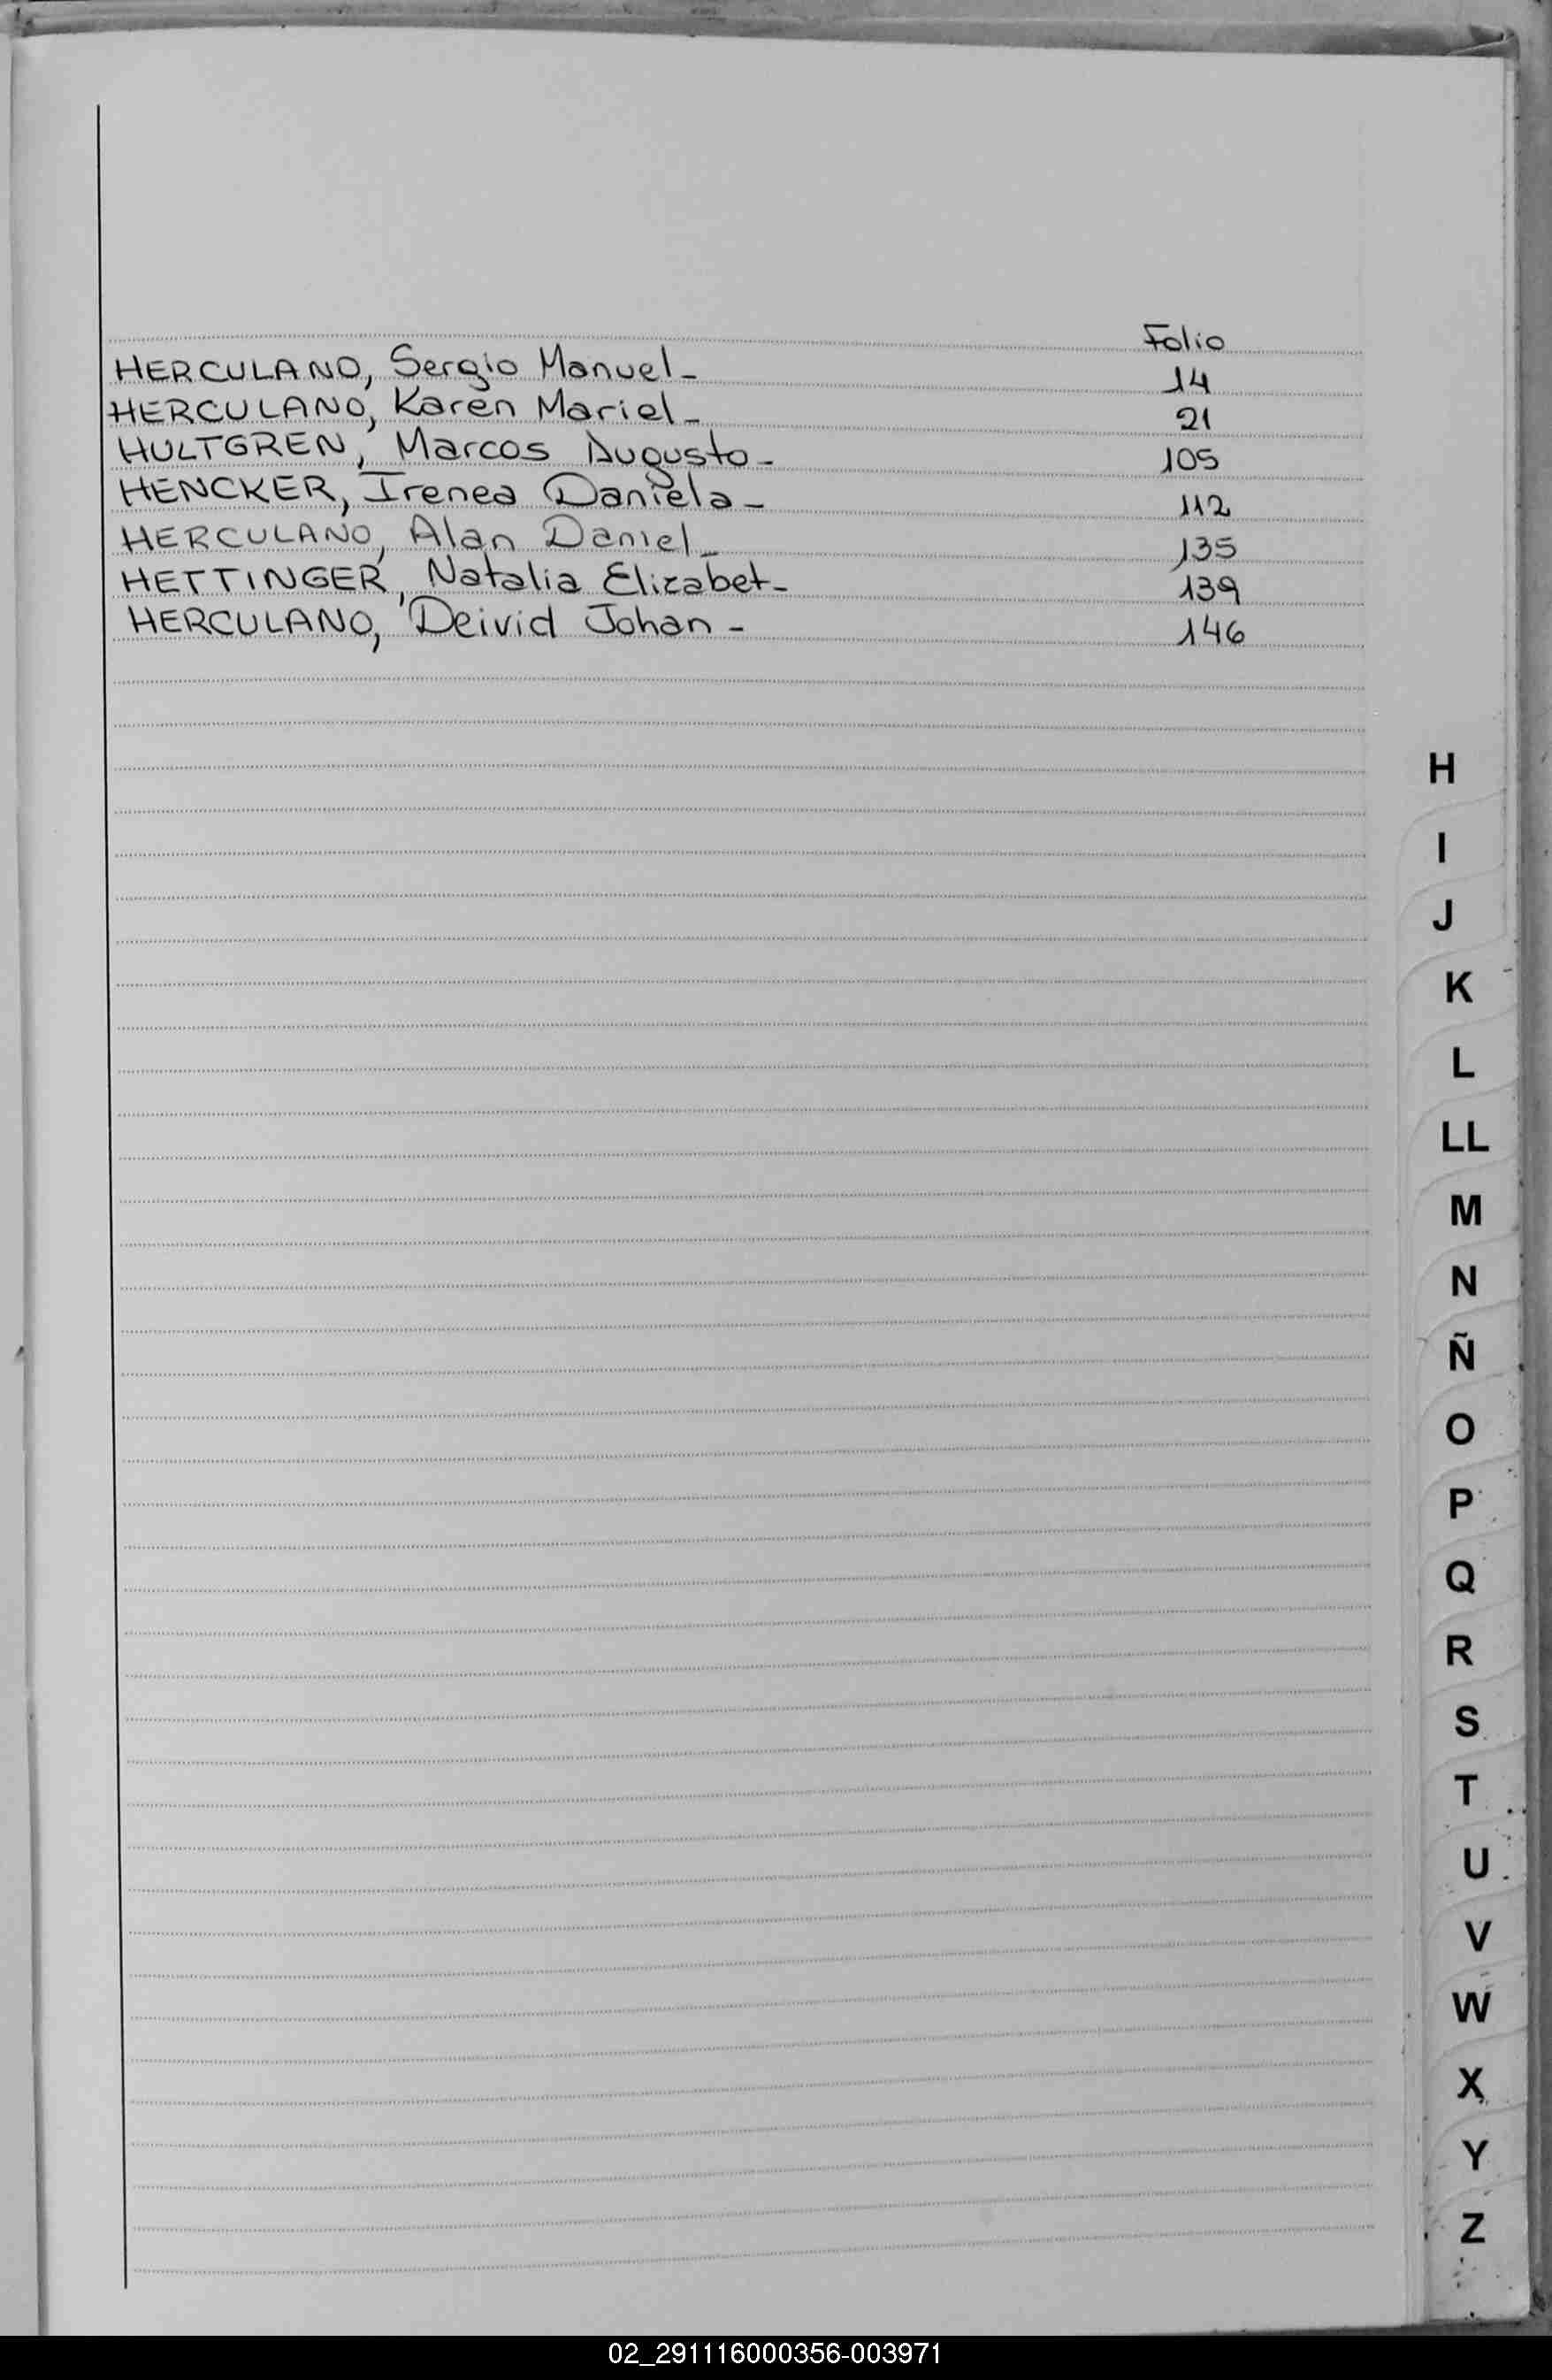 Folio
HERCULANO, Sergio Manuel- 14
HERCULANO, Karen Mariel- 21
HULTGREN, Marcos Augusto- 105
HENCKER, Irenea Daniela- 112
HERCULANO, Alan Daniel- 135
HETTINGER, Natalia Elizabet- 139
HERCULANO, Deivid Johan- 146
H
I
J
K
L
LL
M
N
Ñ
O
P
Q
R
S
T
U
V
W
X
Y
Z
02_291116000356-003971